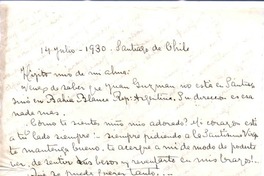 14 Julio - 1930. Santiago de Chile
Hijito mio de mi alma:
Vengo de saber que Juan Guzman no está en Santiago
sinó en Bahía Blanca Rep: Argentina. Su direccion es esa
nada mas.
¿Cómo te sientes niño mío adorado? El corazon está
a tu lado siempre! - siempre pidiendo a la Santísima Virgen
te mantenga bueno, te acerque a mi de modo de poderte
ver, de sentir tus besos y envolverte en mis brazos!..
que se puede querer tanto...